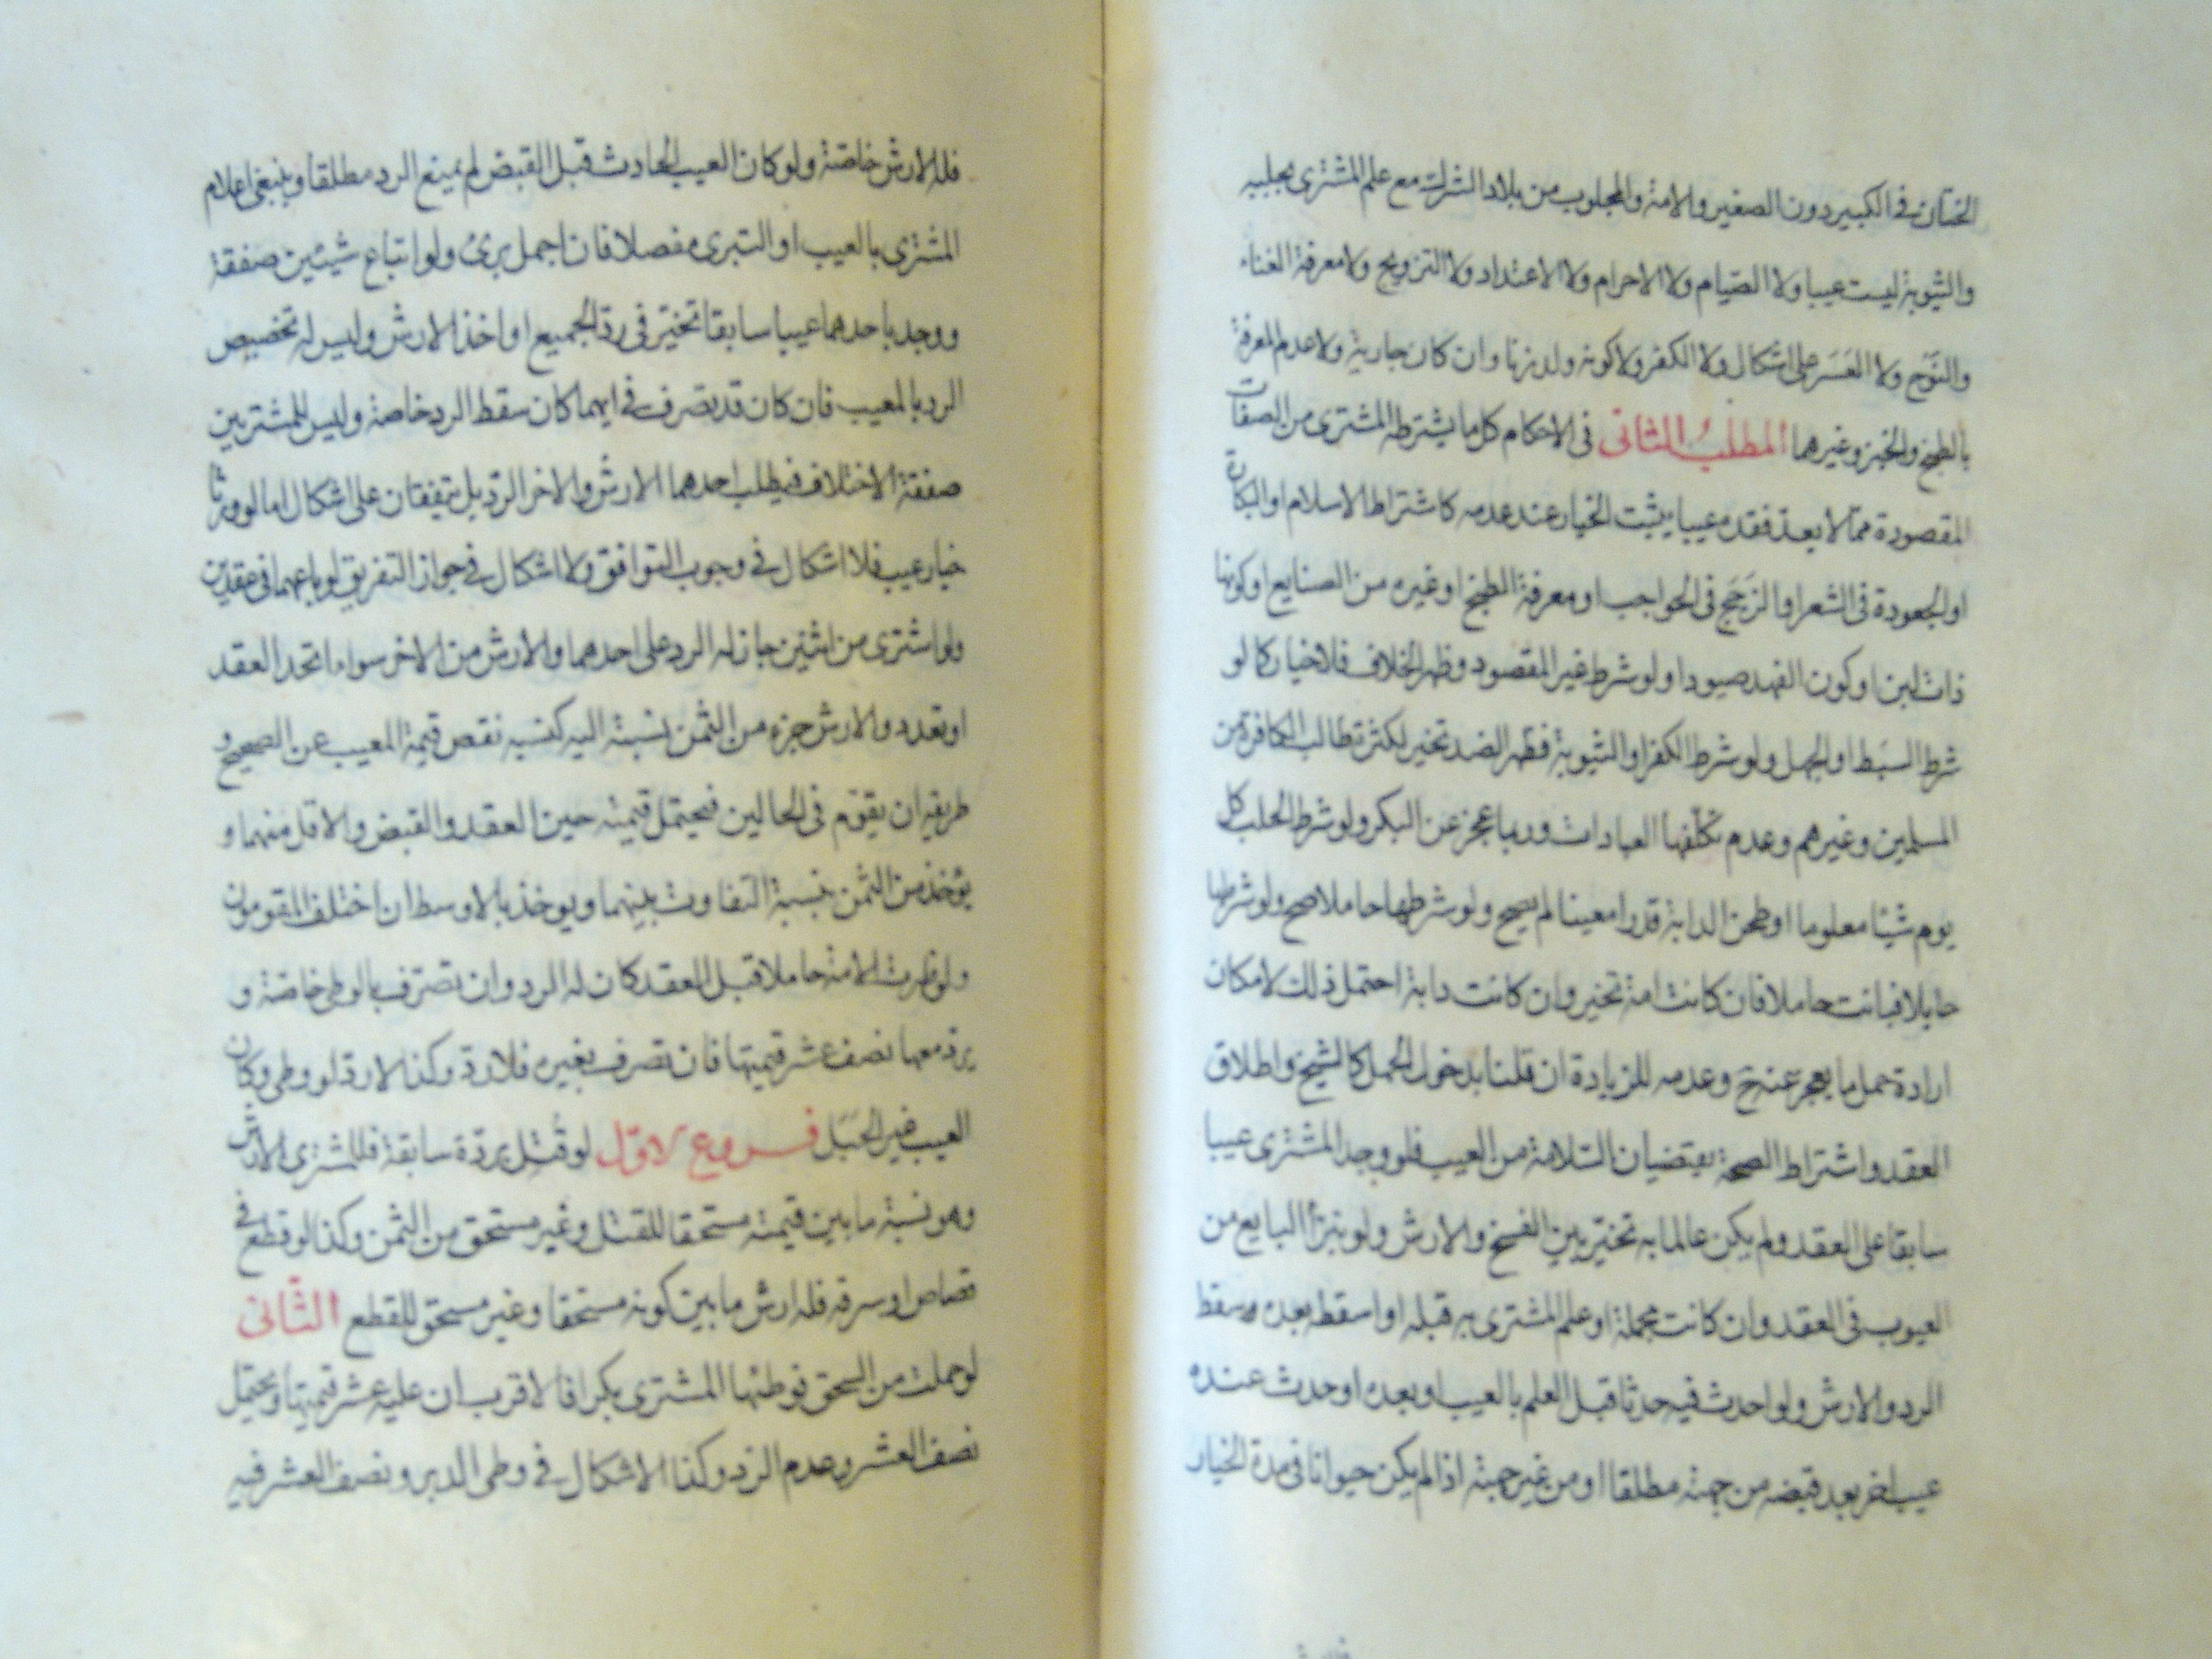 الختان في الكبير دون الصغير والامة والمجلوب من بلاد الشرك مع علم المشتري بجلبه
والثيوبة ليست عيبا ولا الصيام ولا الاحرام ولا الاعتداد ولا التزويج ولا معرفة الغناء
والنوح ولا العسر على اشكال ولا الكفر ولا كونه ولد زنا وان كان جارية ولا عدم المعرفة
بالطبخ والخبز وغيرهما المطلب الثاني في الاحكام كل ما يشترطه المشتري من الصفات
المقصودة مما لا يعد فقده عيبا يثبت الخيار عند عدمه كاشتراط الاسلام او البكارة
او الجعودة في الشعر او الزَجَج في الحواجب او معرفة الطبخ او غيره من الصنايع او كونها
ذات لبن او كون الفهد صيودا ولو شرط غير المقصود وظهر الخلاف فلا خيار كما لو
شرط السبط او الجهل ولو شرط الكفر او الثيوبة فظهر الضد تخير لكثرة طالب الكافرة من
المسلمين وغيرهم وعدم تكلّفها العبادات وربما عجز عن البكر ولو شرط الحلب كل
يوم شيئا معلوما او طحن الدابة قدرا معينا لم يصح ولو شرطها حاملا صح ولو شرطها
حايلا فبانت حاملا فان كانت امة تخير وان كانت دابة احتمل ذلك لامكان
ارادة حمل ما يعجز عنه ح وعدمه للزيادة ان قلنا بدخول الحمل كالشيخ واطلاق
العقد واشتراط الصحة يقتضيان السّلامة من العيب فلو وجد المشتري عيبا
سابقا على العقد ولم يكن عالما به تخيّر بين الفسخ والارش ولو تبرّأ البايع من
العيوب في العقد وان كانت مجملة او علم المشتري به قبله او اسقطه بعده سقط
الرد والارش ولو احدث فيه حدثا قبل العلم بالعيب او بعده او حدث عنده
عيب اخر بعد قبضه من جهته مطلقا او من غير جهته اذا لم يكن حيوانا في مدة الخيار
فله الارش خاصّة ولو كان العيب الحادث قبل القبض لم يمنع الرد مطلقا وينبغي اعلام
المشتري بالعيب او التبري مفصلا فان اجمل برئ ولو ابتاع شيئين صفقة
ووجد باحدهما عيبا سابقا تخيّر في ردّ الجميع او اخذ الارش وليس له تخصيص
الرد بالمعيب فان كان قد تصرف في ايهما كان سقط الرد خاصة وليس للمشتريين
صفقة الاختلاف فيطلب احدهما الارش والاخر الردّ بل يتفقان على اشكال اما لو ورثا
خيار عيب فلا اشكال في وجوب التوافق ولا اشكال في جواز التفريق لو باعهما في عقدين
ولو اشتري من اثنين جاز له الرد على احدهما والارش من الاخر سواء اتحد العقد
او تعدد والارش جزء من الثمن نسبته اليه كنسبه نقص قيمة المعيب عن الصحيح و
طريقه ان يقوّم في الحالين فيحتمل قيمته حين العقد والقبض والاقل منهما و
يؤخذ من الثمن بنسبة التفاوت بينهما ويوخذ بالاوسط ان اختلف المقومون
ولو ظهرت الامة حاملا قبل العقد كان له الرد وان تصرّف بالوطي خاصّة و
يردّ معها نصف عشر قيمتها فان تصرف بغيره فلا ردّ وكذا لا ردّ لو وطي وكان
العيب غير الحَبَل فــروع الاوّل لو قُتِل بردّة سابقة فللمشتري الارش
وهو نسبة ما بين قيمته مستحقا للقتل وغير مستحق من الثمن وكذا لو قطع في
قصاص او سرقه فله ارش ما بين كونه مستحقا وغير مستحق للقطع الثّاني
لو حملت من السحق فوطئها المشتري بكرا فالاقرب ان عليه عشر قيمتها ويحتمل
نصف العشر وعدم الرد وكذا الاشكال في وطي الدبر ونصف العشر فيه